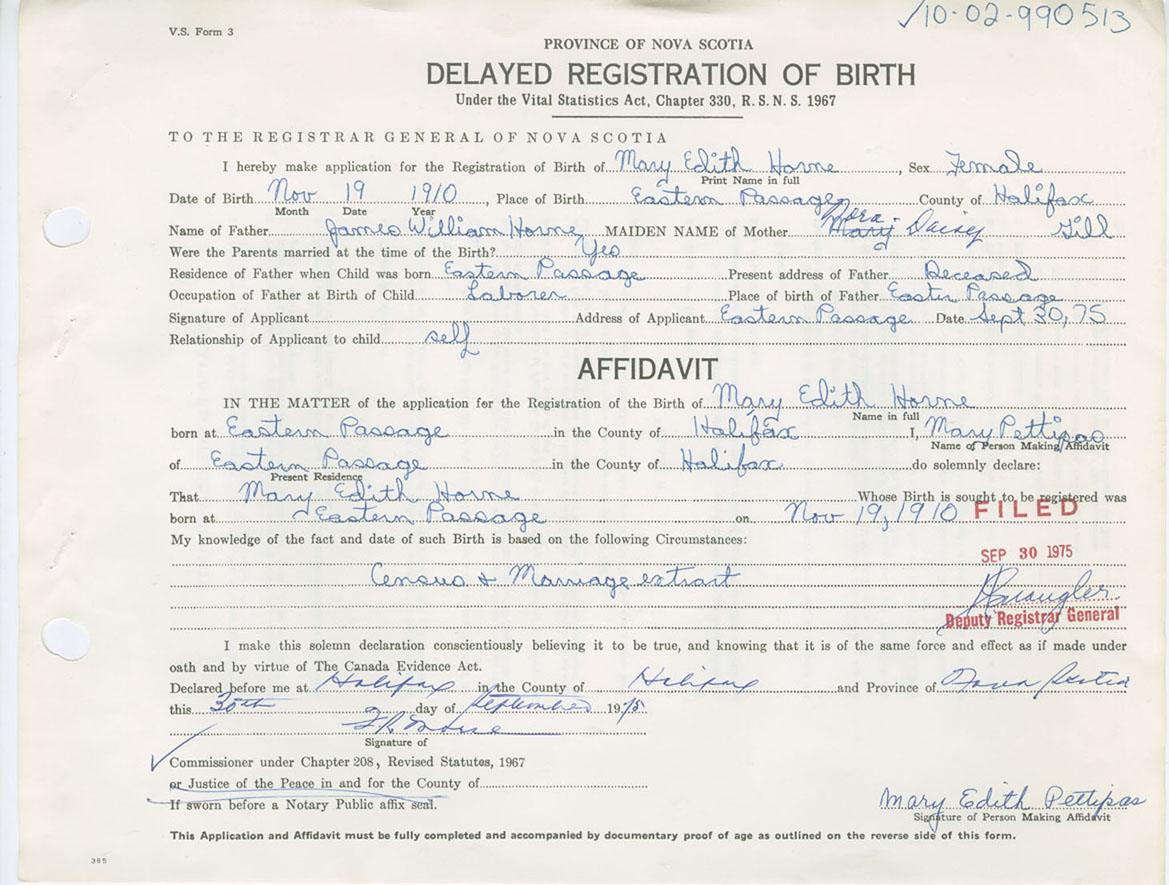 ✓10-02-990513
V.S. Form 3
PROVINCE OF NOVA SCOTIA
DELAYED REGISTRATION OF BIRTH
Under the Vital Statistics Act, Chapter 330, R. S. N. S. 1967
TO THE REGISTRAR GENERAL OF NOVA SCOTIA
I hereby make application for the Registration of Birth of Mary Edith Horne, Sex Female
Print Name in full
Date of Birth Nov 19 1910, Place of Birth Eastern Passage County of Halifax
Month Date Year
Nora
Name of Father James William Horne MAIDEN NAME of Mother Mary Daisy Gill
Were the Parents married at the time of the Birth? Yes
Residence of Father when Child was born Eastern Passage Present address of Father Deceased
Occupation of Father at Birth of Child Laborer Place of birth of Father Eastern Passage
Signature of Applicant Address of Applicant Eastern Passage Date Sept 30, 75
Relationship of Applicant to child self
AFFIDAVIT
IN THE MATTER of the application for the Registration of the Birth of Mary Edith Horne
Name in full
born at Eastern Passage in the County of Halifax I, Mary Pettipas
Name of Person Making Affidavit
of Eastern Passage in the County of Halifax do solemnly declare:
Present Residence
That Mary Edith Horne Whose Birth is sought to be registered was
born at Eastern Passage on Nov 19, 1910 FILED
My knowledge of the fact and date of such Birth is based on the following Circumstances:
SEP 30 1975
Census & Marriage extract
Deputy Registrar General
I make this solemn declaration conscientiously believing it to be true, and knowing that it is of the same force and effect as if made under
oath and by virtue of The Canada Evidence Act.
Declared before me at Halifax in the County of Halifax and Province of Nova Scotia
this 30th day of September 1975
Signature of
✓ Commissioner under Chapter 208, Revised Statutes, 1967
or Justice of the Peace in and for the County of
If sworn before a Notary Public affix seal.
Mary Edith Pettipas
Signature of Person Making Affidavit
This Application and Affidavit must be fully completed and accompanied by documentary proof of age as outlined on the reverse side of this form.
385